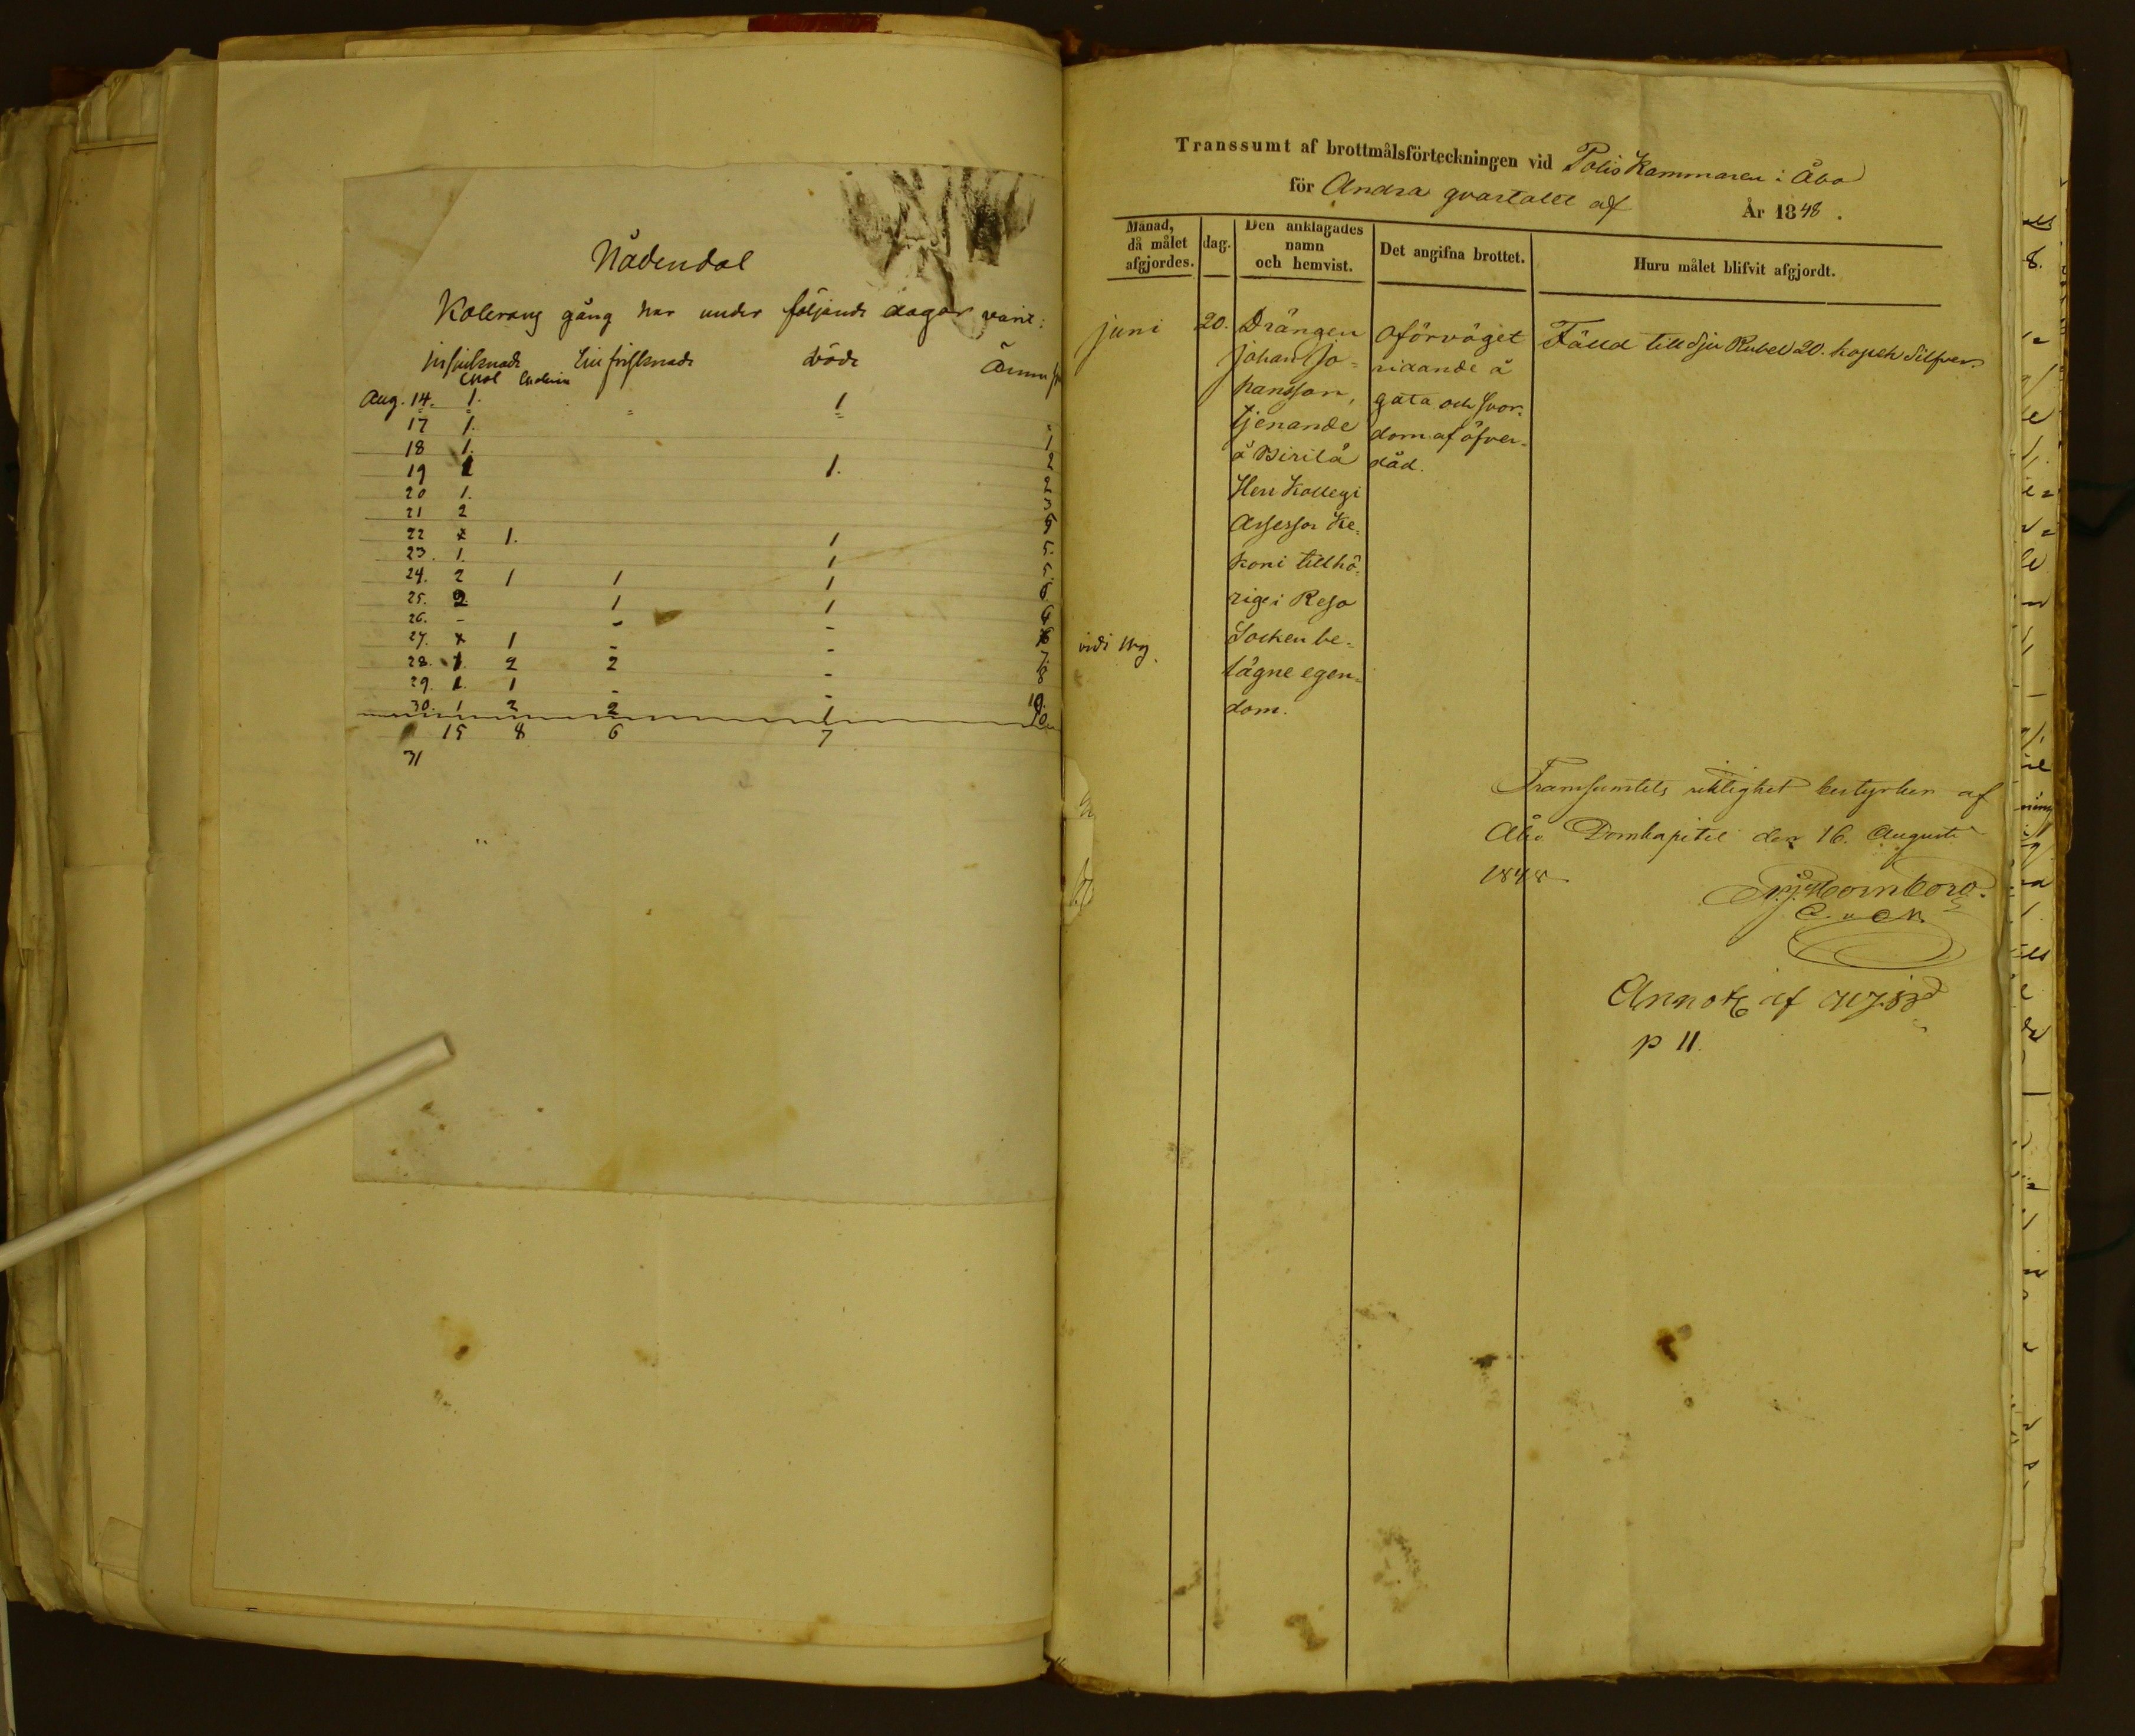 Nådendal
Kolerans gång har under följande dagar varit:
Insjuknade Tillfrisknade döde
Chol Cholerin
Aug. 14. 1. " 1
17 1. -
18 1. 1
19 1 1. 2
20 1. 2
21 2 3
22 x 1. 1 5
23. 1. 1 5.
24. 2 1 1 1 5.
25. 2. 1 1 6
26. - - - 6
27. x 1 - - 6
28. 1. 2 2 - 7.
29. 1. 1 - - 8
30. 1 2 2 1 10.
15 8 6 7
31
Transsumt af brottmålsförteckningen vid Polis Kammaren i Åbo
för Andra qvartalet af År 1848.
Månad, då målet afgjordes.
dag.
Den anklagades namn och hemvist.
Det angifna brottet.
Huru målet blifvit afgjordt.
Juni 20.
Drängen
Johan Jo-
hansson,
tjenande
å Pirilä
Herr Kollegi
Assessor Ke-
koni tillhö-
rige i Reso
Socken be-
lägne egen-
dom.
oförväget
ridande å
gata och svor-
dom af öfver-
dåd.
Fälld till Sju Rubel 20. kopek Silfver.
vidi
Transsumtets riktighet bestyrker af
Åbo Domkapitel den 16. Augusti
1848
Hornborg.
Annot af
p 11.